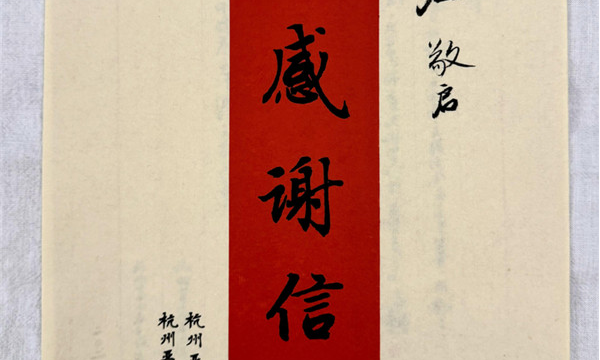 敬启
感谢信
杭州
杭州